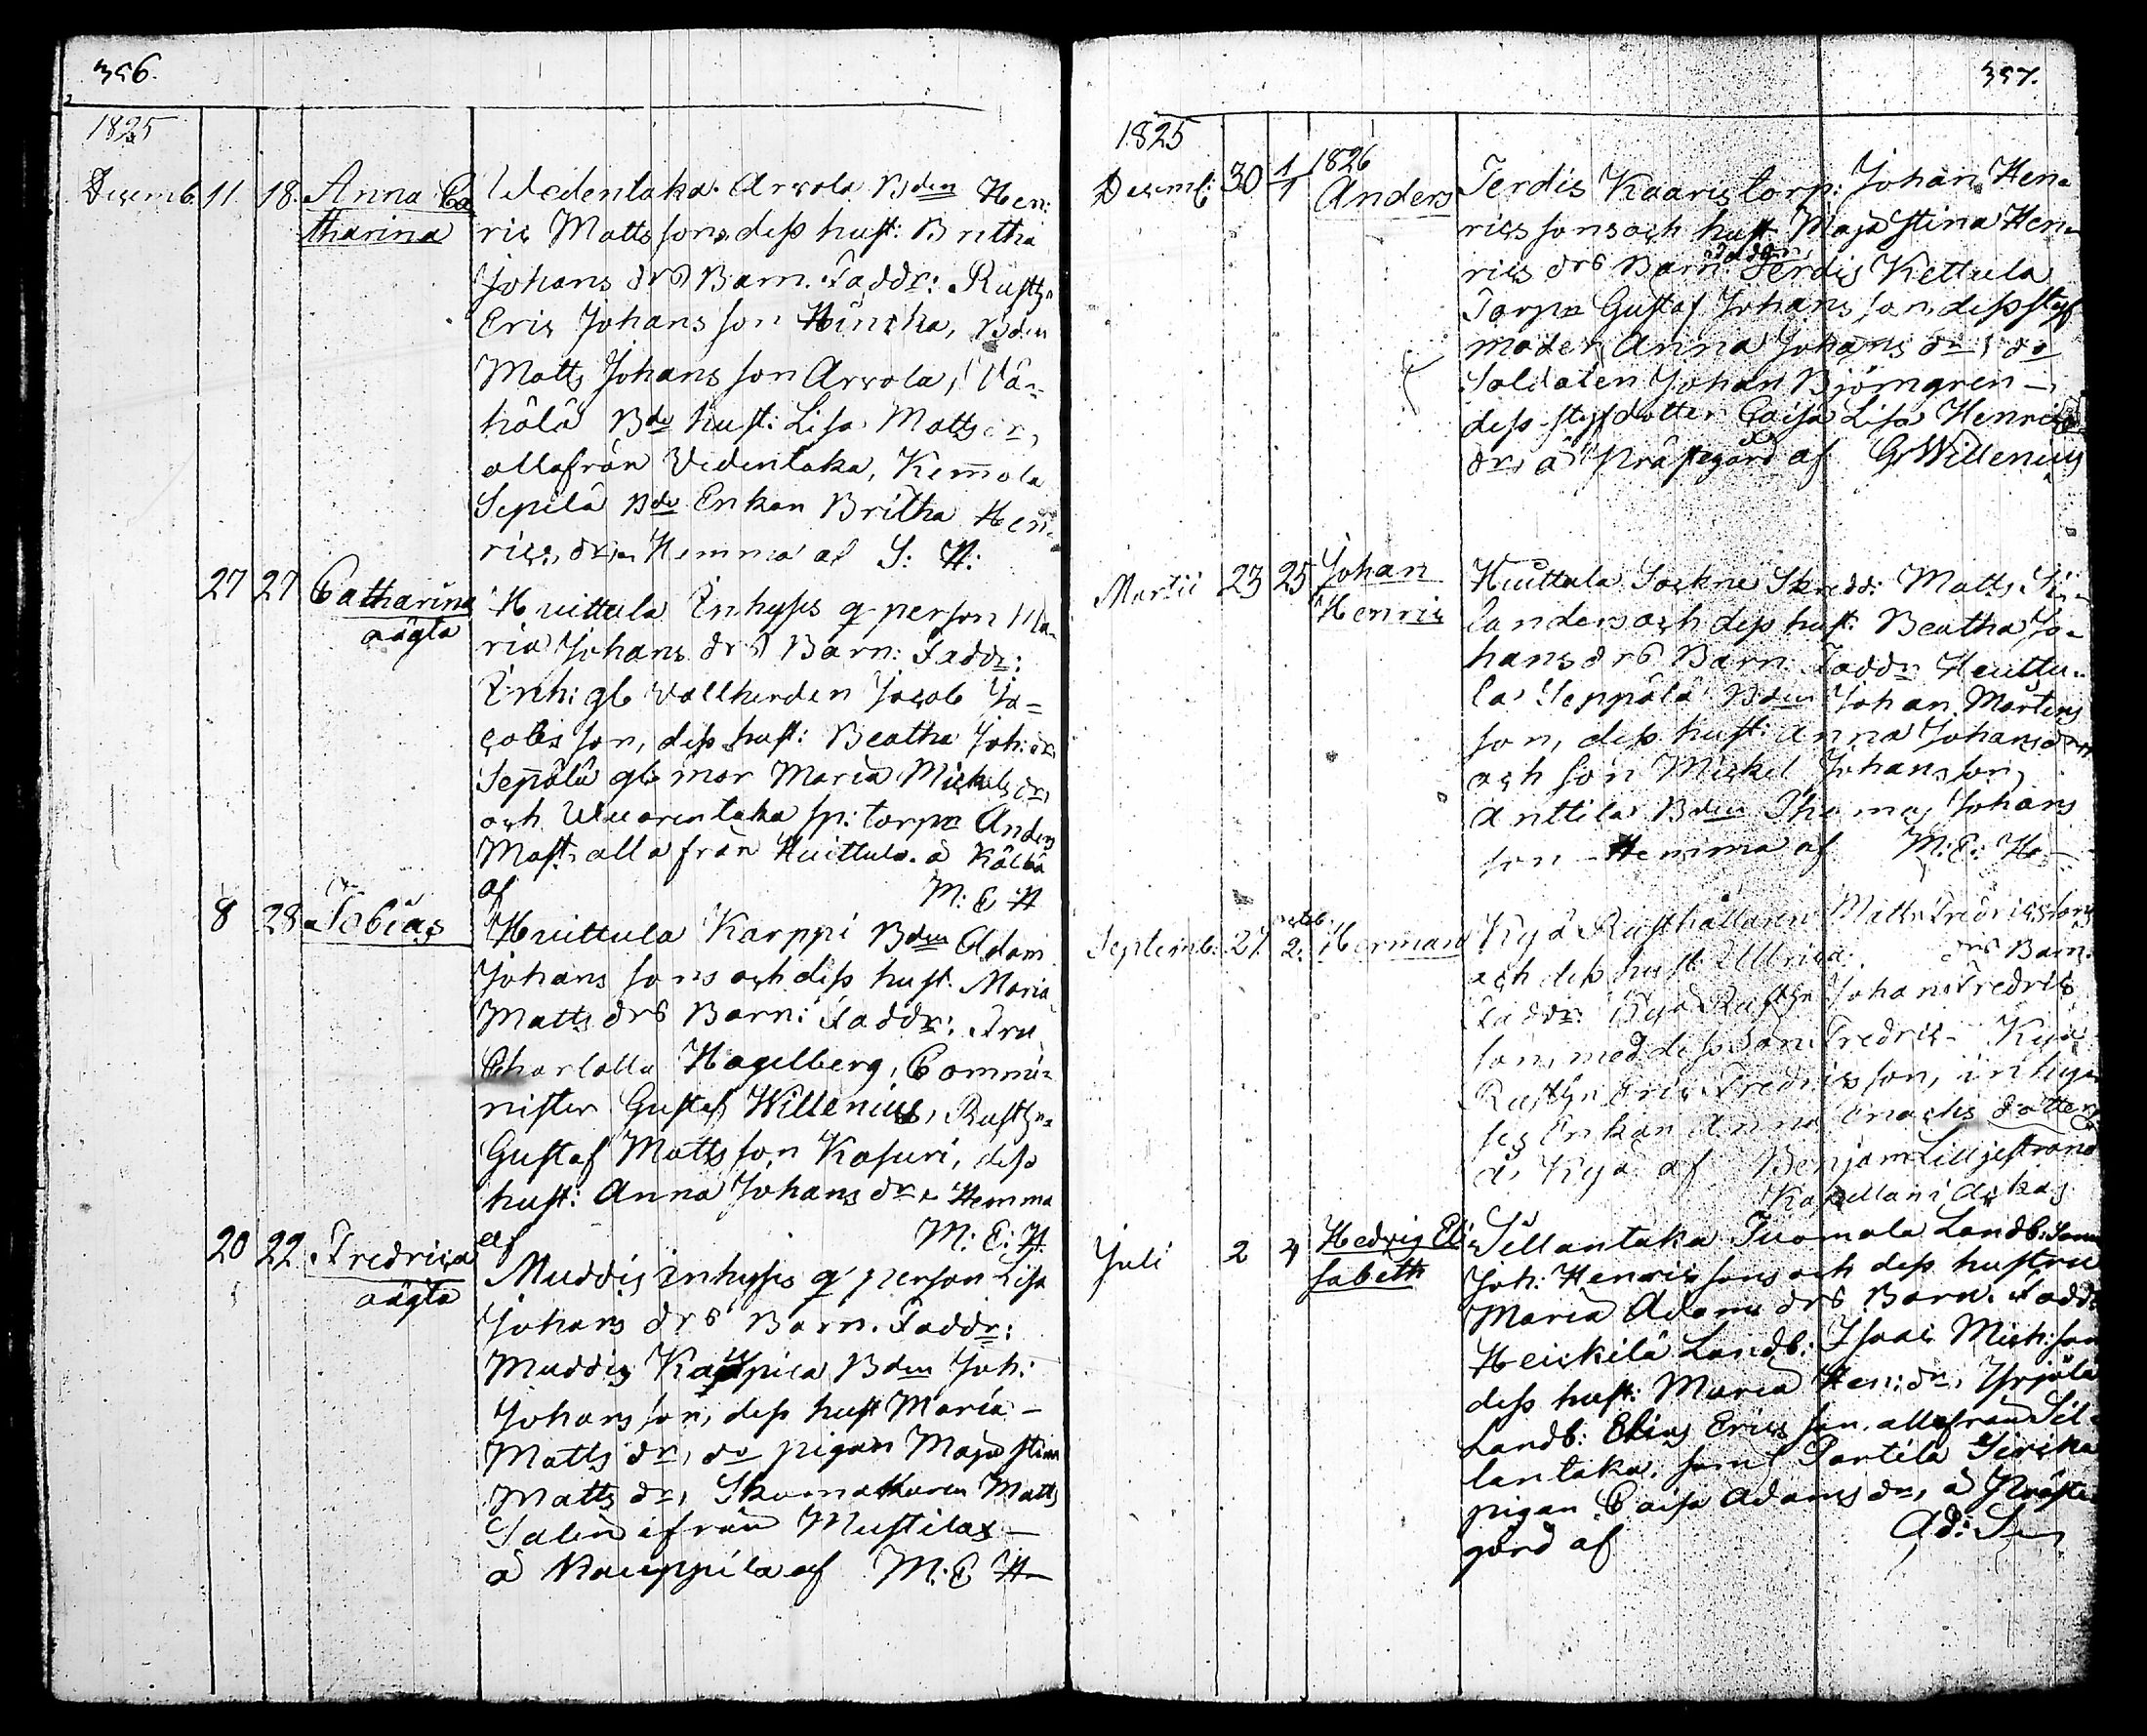 356.
1825
Decemb. 11 18 Anna Ca Wedentaka Arvola Bden Hen:
tharina ric Matts sons, dess hust: Britha
Johans drs Barn. Faddr: Rusth:
Eric Johans son Hinkka, Bden
Matts Johans son Arvola, Vä-
hälä Bde hust: Lisa Matts dr,
alla från Vedentaka, Kemola
Sepilä Bde Enkan Britha Hen-
rics dr, Hemma af S: H:
27 27 Catharina Huittula Inhyses q person Ma-
oägta ria Johans drs Barn: Faddr:
Inh: gl Vallherden Jacob Ja=
cobs son, dess hust: Beatha Joh: dr,
Sepälä gl mor Maria Mickels dr,
och Wuorentaka sp: torpn Anders
Matts: alla från Huittula. a Kälbä
af M: E H
8 28 Tobias Huittula Karppi Bden Adam
Johans sons och dess hust. Maria
Matts drs Barn: Faddr: Fru
Charlotta Hagelberg, Commi-
nister Gustaf Willenius, Rusth:
Gustaf Matts son Kasuri, dess
hust: Anna Johans dr. Hemma
af M: E: H
20 22 Fredrica Muddis Inhyses q person Lisa
oägta Johans drs Barn. Faddr:
Muddis Bden Joh:
Johans son, dess hust Maria -
Matts dr, do pigan Maja Stina
Matts dr, Skomakaren Matts
Salin ifrån Mustila -
a Nauppila af M: E H
357.
1825
Decemb: 30 1/1 1826
Anders Terdis Kaaris torp: Johan Hen-
rics sons och hust Maja Stina Hen-
rics drs Barn: Faddr: Terdis Kettula
Torpn Gustaf Johans son, dess styf
moder, Anna Johans dr, do
Soldaten Johan Björngren -
dess styfdotter Caisa Lisa Henrics
dr, a Prästegård af G Willenius
Martii 23 25 Johan Huittula Sockne Skredd: Matts
Henric landers och dess hust: Beatha Jo-
hans drs Barn: Faddr Huittu-
la Seppälä Bden Johan Mårtens
son, dess hust: Anna Johans drn
och son Mickel Johansson,
Anttila Bden Thomas Johans
son - Hemma af M: E: H -
Septemb: 27. octob. 2. Herman Kyä Rusthållaren Matts Fredrics sons
och dess hust Ullrica drs Barn.
Faddr: Kyä Rusthn Johan Fredrics
son, med dess Son Fredric - Kyä
Rusthn Eric Fredrics son, inhy-
ses Enkan Anna Enochs dotter
a Kyä af Benjam Lilljestrand
Kapellan i Ackas
Juli 2 4 Hedvig Eli Sillantaka Tuomola Landb: Sonen
sabeth Joh: Henrics sons och dess hustru
Maria Adams drs Barn. Faddr
Heickilä Landb: Isaac Mich: son
dess hust: Maria Hen: dr, Yrjölä
Landb: Elias Erics son, alla från Sil-
lantaka, samt Pantila Jirika
pigan Caisa Adams dr, a Präste
gård af Ad: